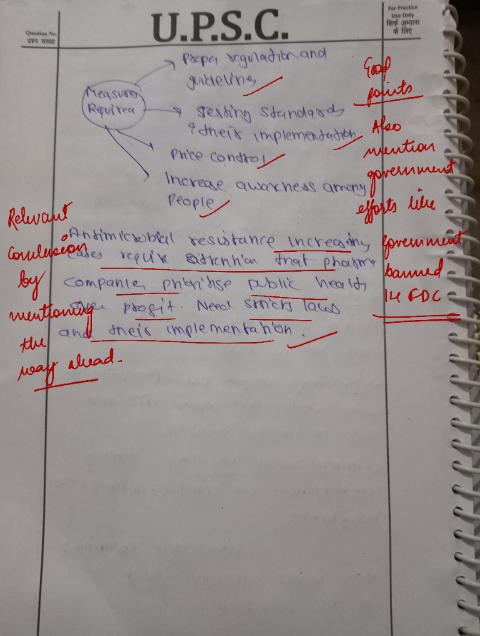 Question No.
प्रश्न संख्या
U.P.S.C.
For Practice
Use Only
सिर्फ अभ्यास
के लिए
Measures
Required
Proper regulation and
guidelines
Testing standards
& their implementation
Price control
Increase awarness among
People
Good
points
Also
mention
government
efforts like
government
banned
14 FDC
Relevant
conclusion
by
mentioning
the
way ahead.
Antimicrobial resistance increasing
cases require that pharma
companies prioritise public health
over profit. Need stricts laws
and their implementation.